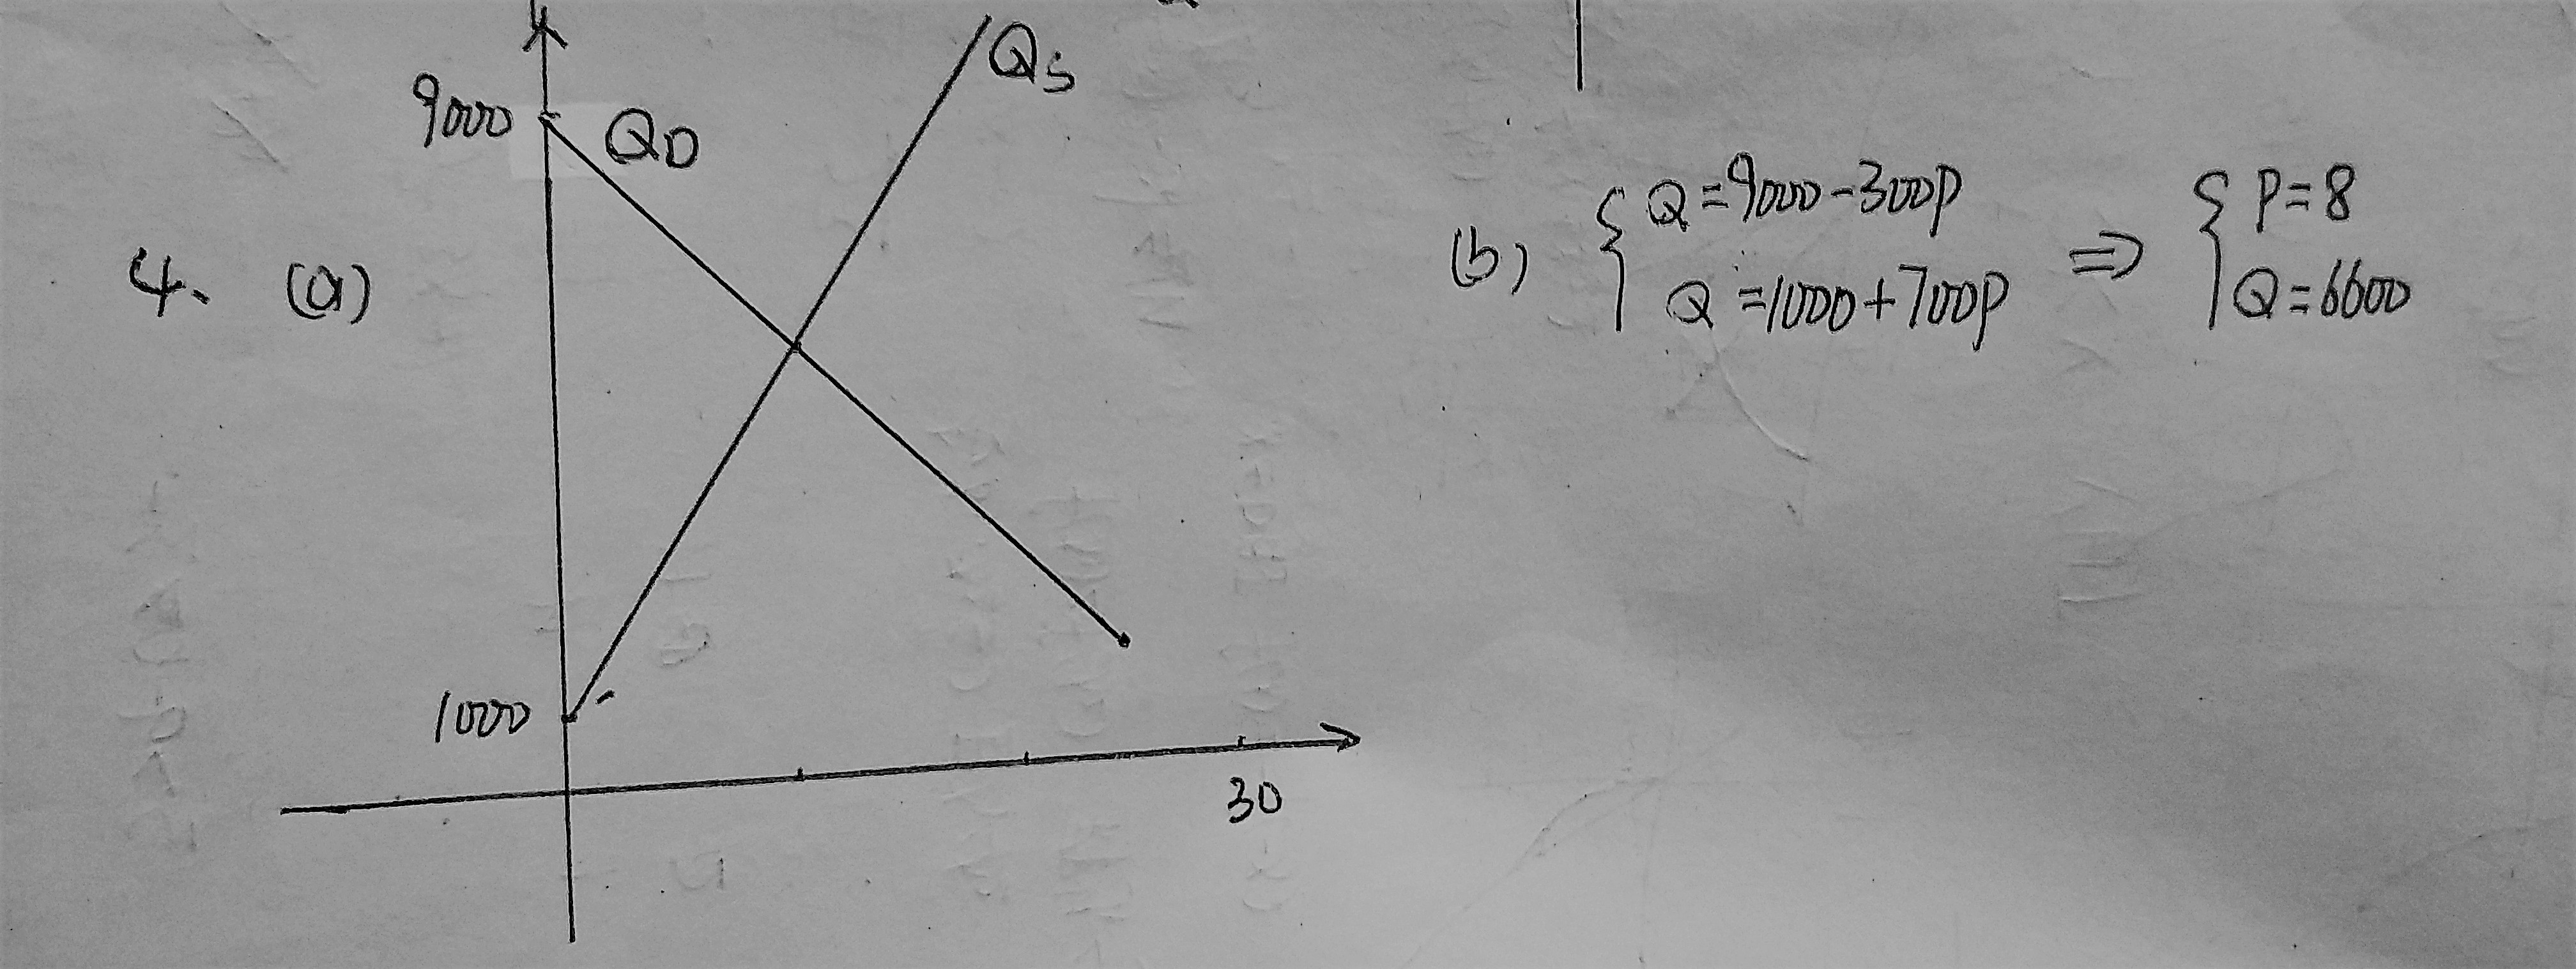 Qs
9000 QD
4. (a)
1000
30
(b) { Q = 9000 - 300P
Q = 1000 + 700P
⇒ { P = 8
Q = 6600